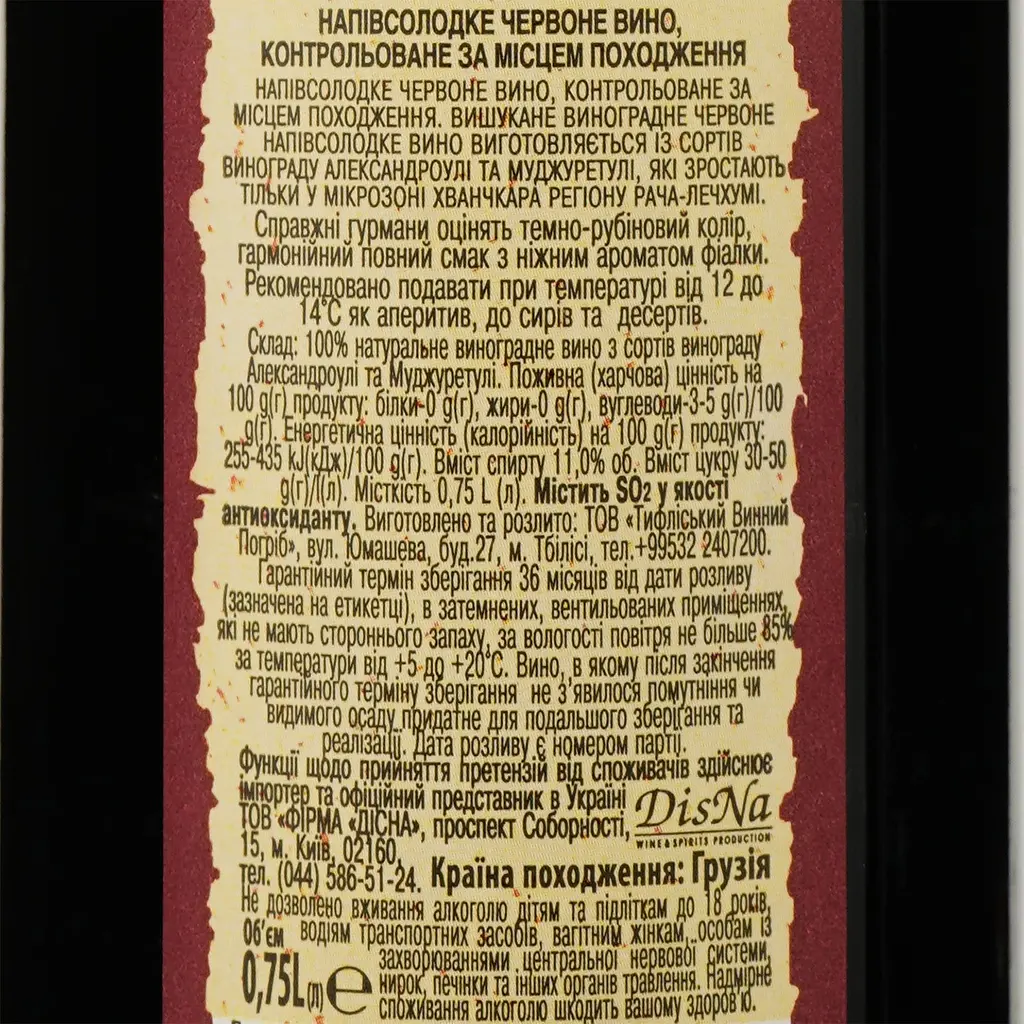 НАПІВСОЛОДКЕ ЧЕРВОНЕ ВИНО,
КОНТРОЛЬОВАНЕ ЗА МІСЦЕМ ПОХОДЖЕННЯ
НАПІВСОЛОДКЕ ЧЕРВОНЕ ВИНО, КОНТРОЛЬОВАНЕ ЗА
МІСЦЕМ ПОХОДЖЕННЯ. ВИШУКАНЕ ВИНОГРАДНЕ ЧЕРВОНЕ
НАПІВСОЛОДКЕ ВИНО ВИГОТОВЛЯЄТЬСЯ ІЗ СОРТІВ
ВИНОГРАДУ АЛЕКСАНДРОУЛІ ТА МУДЖУРЕТУЛІ, ЯКІ ЗРОСТАЮТЬ
ТІЛЬКИ У МІКРОЗОНІ ХВАНЧКАРА РЕГІОНУ РАЧА-ЛЕЧХУМІ.
Справжні гурмани оцінять темно-рубіновий колір,
гармонійний повний смак з ніжним ароматом фіалки.
Рекомендовано подавати при температурі від 12 до
14°С як аперитив, до сирів та десертів.
Склад: 100% натуральне виноградне вино з сортів винограду
Александроулі та Муджуретулі. Поживна (харчова) цінність на
100 g(г) продукту: білки-0 g(г), жири-0 g(г), вуглеводи-3-5 g(г)/100
g(г). Енергетична цінність (калорійність) на 100 g(г) продукту:
255-435 kJ(кДж)/100 g(г). Вміст спирту 11,0% об. Вміст цукру 30-50
g(г)/l(л). Місткість 0,75 L (л). Містить SO2 у якості
антиоксиданту. Виготовлено та розлито: ТОВ «Тифліський Винний
Погріб», вул. Юмашева, буд.27, м. Тбілісі, тел.+99532 2407200.
Гарантійний термін зберігання 36 місяців від дати розливу
(зазначена на етикетці), в затемнених, вентильованих приміщеннях,
які не мають стороннього запаху, за вологості повітря не більше 85%
за температури від +5 до +20°С. Вино, в якому після закінчення
гарантійного терміну зберігання не з'явилося помутніння чи
видимого осаду придатне для подальшого зберігання та
реалізації. Дата розливу є номером партії.
Функції щодо прийняття претензій від споживачів здійснює
імпортер та офіційний представник в Україні
ТОВ «ФІРМА «ДІСНА», проспект Соборності,
15, м. Київ, 02160,
тел. (044) 586-51-24.
DisNa
WINE & SPIRITS PRODUCTION
Країна походження: Грузія
Не дозволено вживання алкоголю дітям та підліткам до 18 років,
водіям транспортних засобів, вагітним жінкам, особам із
захворюваннями центральної нервової системи,
нирок, печінки та інших органів травлення. Надмірне
споживання алкоголю шкодить вашому здоров'ю.
Об'єм
0,75L(л) e